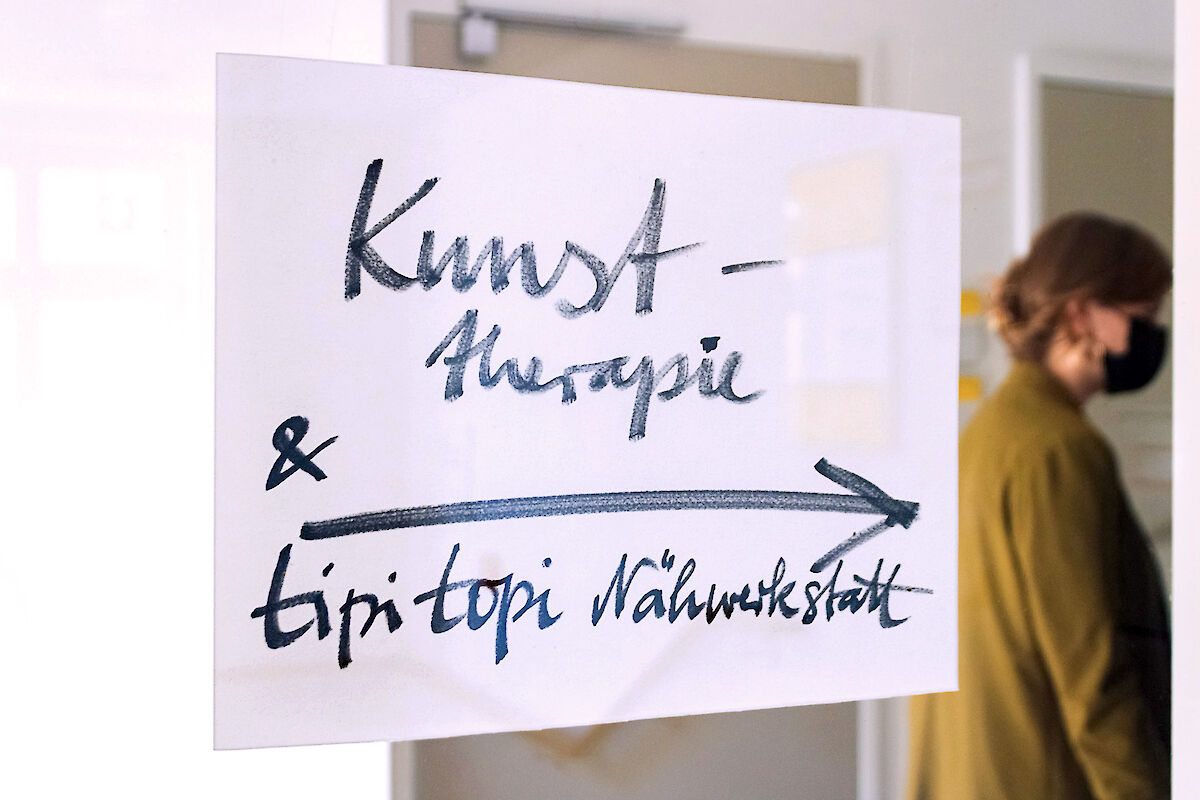 Kunst-
therapie
&
tipi topi Nähwerkstatt